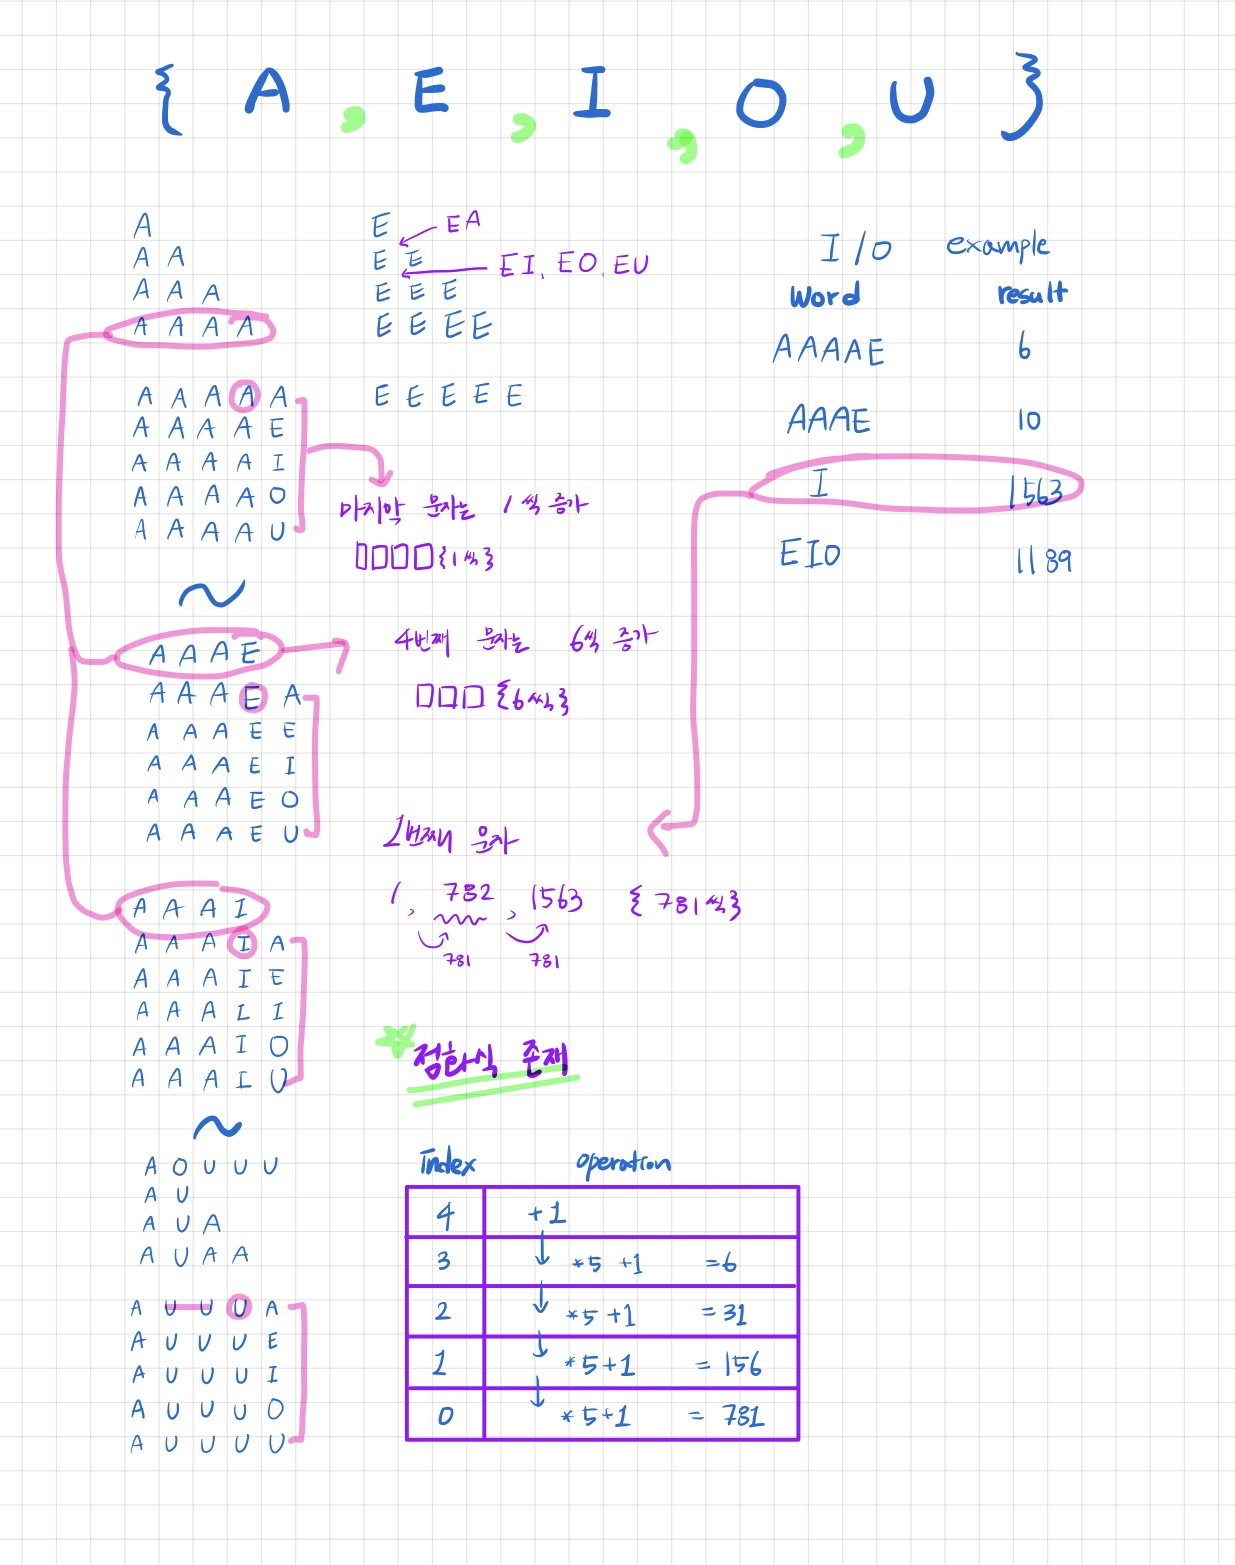 { A , E , I , O , U }
A
A A
A A A
A A A A
A A A A A
A A A A E
A A A A I
A A A A O
A A A A U
~
A A A E
A A A E A
A A A E E
A A A E I
A A A E O
A A A E U
A A A I
A A A I A
A A A I E
A A A I I
A A A I O
A A A I U
~
A O U U U
A U
A U A
A U A A
A U U U A
A U U U E
A U U U I
A U U U O
A U U U U
E
EA
E E
EI, EO, EU
E E E
E E E E
E E E E E
마지막 문자는 1씩 증가
□□□□{1씩}
4번째 문자는 6씩 증가
□□□{6씩}
1번째 문자
1, 782, 1563 {781씩}
781 781
점화식 존재
index operation
4 +1
3 *5 +1 =6
2 *5+1 =31
1 *5+1 =156
0 *5+1 =781
I/O example
Word result
AAAAE 6
AAAE 10
I 1563
EIO 1189